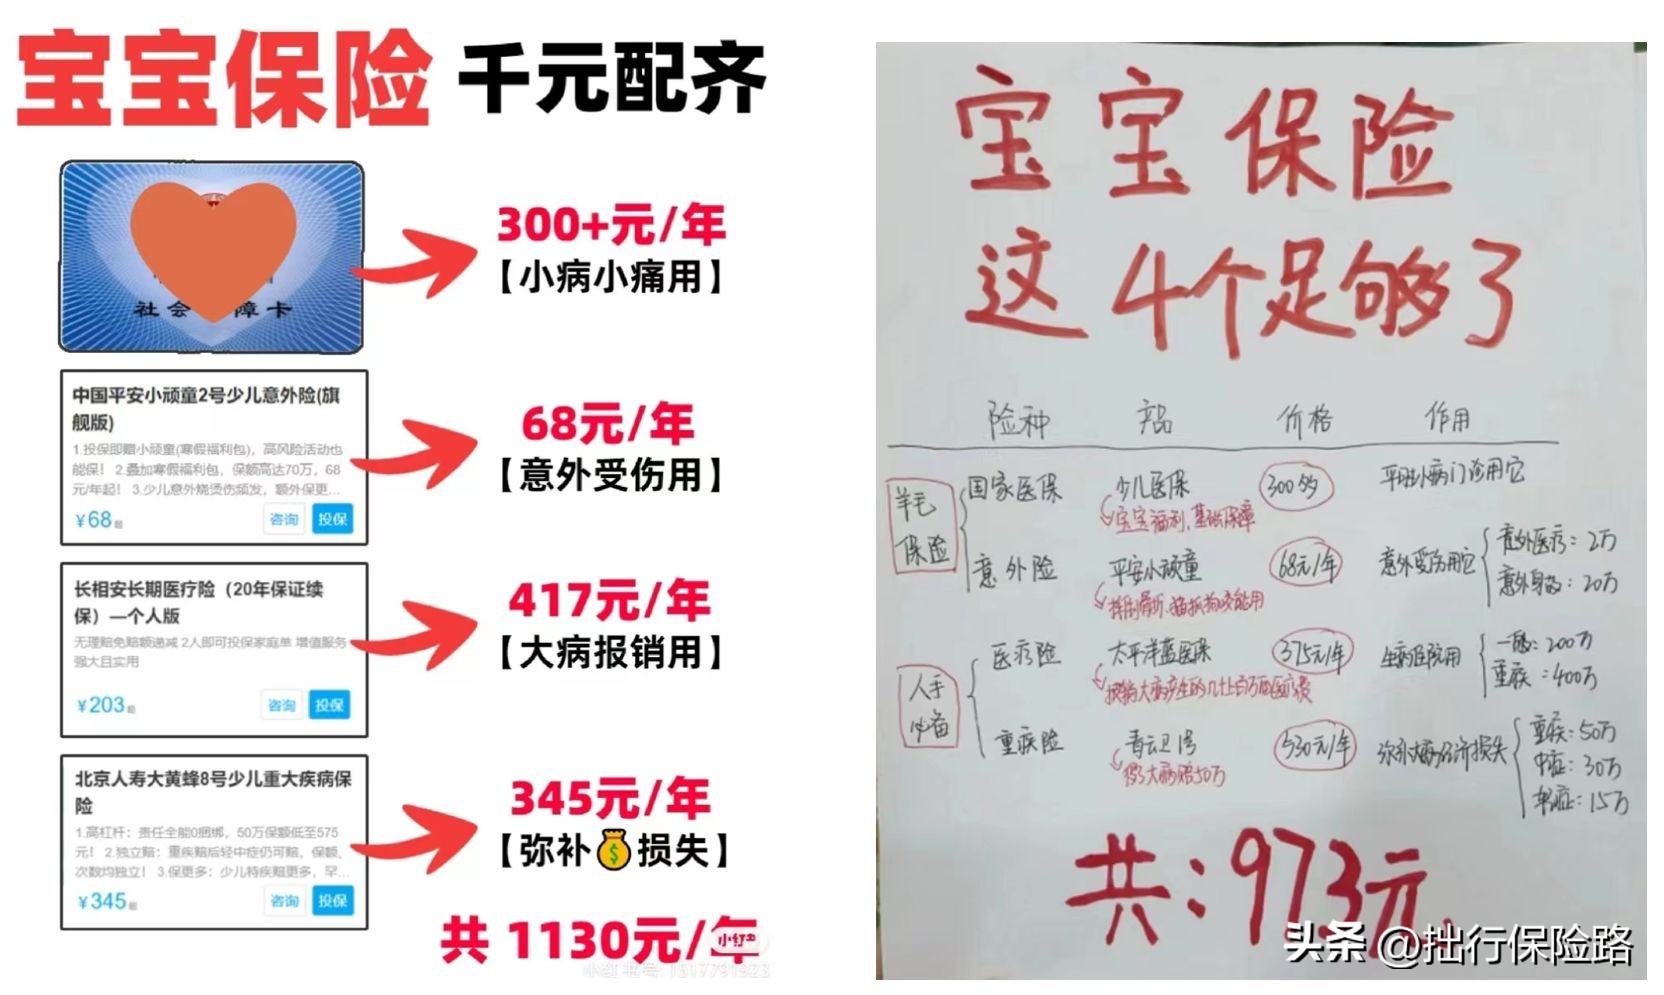 宝宝保险 千元配齐
社会 障卡
300+元/年
【小病小痛用】
中国平安小顽童2号少儿意外险(旗
舰版)
1.投保即赠小顽童(寒假福利包)，高风险活动也
能保！ 2.叠加寒假福利包，保额高达70万，68
元/年起！ 3.少儿意外烧烫伤频发，额外保更...
¥68起
咨询 投保
68元/年
【意外受伤用】
长相安长期医疗险（20年保证续
保）—个人版
无理赔免赔额递减 2人即可投保家庭单 增值服务
强大且实用
¥203起
咨询 投保
417元/年
【大病报销用】
北京人寿大黄蜂8号少儿重大疾病保
险
1.高杠杆：责任全能0捆绑，50万保额低至575
元！ 2.独立赔：重疾赔后轻中症仍可赔，保额、
次数均独立！ 3.保更多：少儿特疾赔更多，早...
¥345起
咨询 投保
345元/年
【弥补💰损失】
共 1130元/年
小红书
小红书号: 1317791923
宝宝保险
这4个足够了
险种 产品 价格 作用
羊毛保险
国家医保 少儿医保 300多 平时小病门诊用它
宝宝福利、基础保障
意外险 平安小顽童 68元/年 意外受伤用它 意外医疗：2万
意外身故：20万
摔倒骨折、猫抓狗咬能用
人手必备
医疗险 太平洋蓝医保 375元/年 生病住院用 一般：200万
重疾：400万
报销大病产生的几十上百万的医疗费
重疾险 青云卫1号 530元/年 弥补大病经济损失 重疾：50万
中症：30万
轻症：15万
得了大病赔50万
共：973元
头条 @拙行保险路